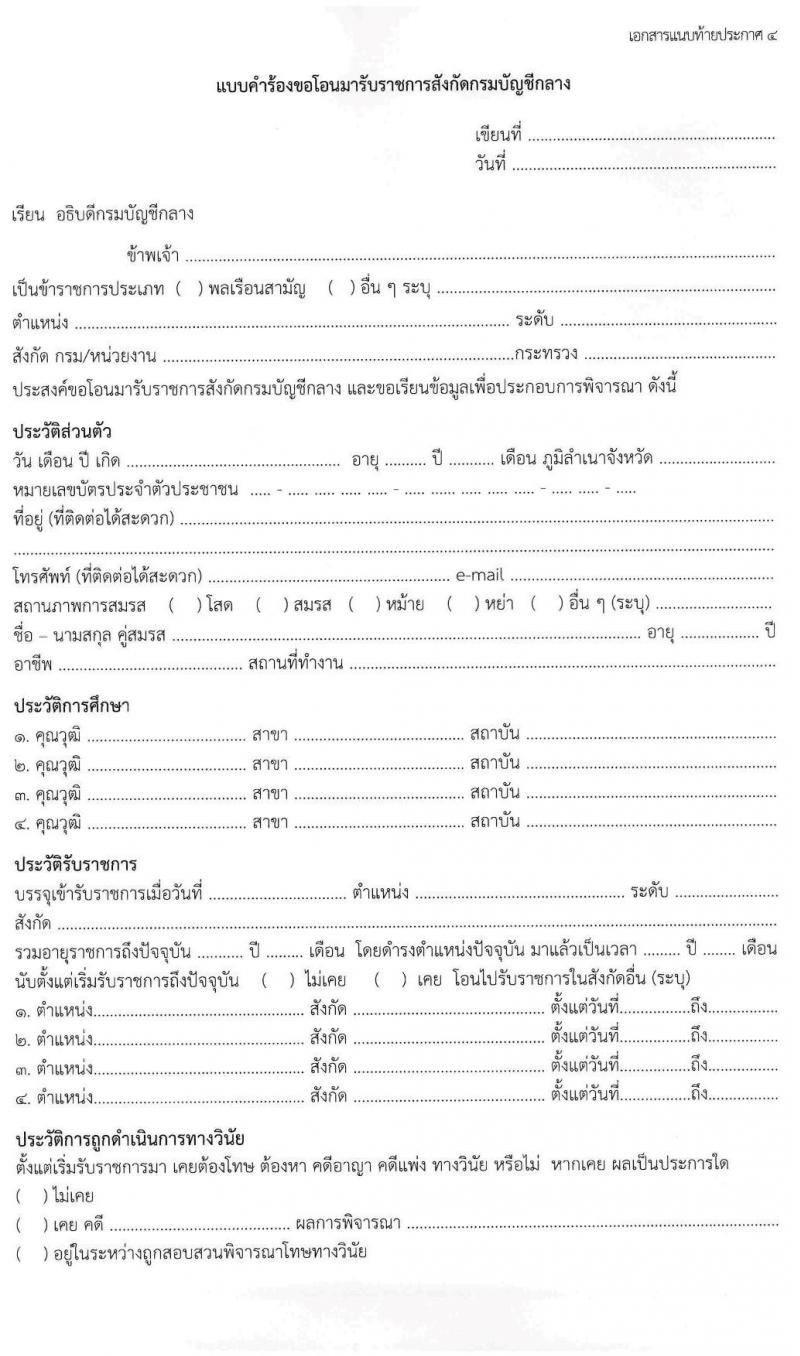 เอกสารแนบท้ายประกาศ ๔
แบบคำร้องขอโอนมารับราชการสังกัดกรมบัญชีกลาง
เขียนที่ ..........................................................
วันที่ ..............................................................
เรียน อธิบดีกรมบัญชีกลาง
ข้าพเจ้า ..............................................................................................................................
เป็นข้าราชการประเภท ( ) พลเรือนสามัญ ( ) อื่น ๆ ระบุ ..............................................................................
ตำแหน่ง ..................................................................................................... ระดับ ..................................................
สังกัด กรม/หน่วยงาน .................................................................................กระทรวง .............................................
ประสงค์ขอโอนมารับราชการสังกัดกรมบัญชีกลาง และขอเรียนข้อมูลเพื่อประกอบการพิจารณา ดังนี้
ประวัติส่วนตัว
วัน เดือน ปี เกิด .................................................. อายุ .......... ปี ........... เดือน ภูมิลำเนาจังหวัด ...........................
หมายเลขบัตรประจำตัวประชาชน ..... - ..... ..... ..... ..... - ..... ..... ..... ..... ..... - ..... ..... - .....
ที่อยู่ (ที่ติดต่อได้สะดวก) ..............................................................................................................................
................................................................................................................................................................
โทรศัพท์ (ที่ติดต่อได้สะดวก) ......................................................... e-mail ..............................................................
สถานภาพการสมรส ( ) โสด ( ) สมรส ( ) หม้าย ( ) หย่า ( ) อื่น ๆ (ระบุ) ...........................
ชื่อ – นามสกุล คู่สมรส ............................................................................................................. อายุ .................. ปี
อาชีพ ........................................... สถานที่ทำงาน ....................................................................................................
ประวัติการศึกษา
๑. คุณวุฒิ ..................................... สาขา ........................................ สถาบัน ..........................................................
๒. คุณวุฒิ ..................................... สาขา ........................................ สถาบัน ..........................................................
๓. คุณวุฒิ ..................................... สาขา ........................................ สถาบัน ..........................................................
๔. คุณวุฒิ ..................................... สาขา ........................................ สถาบัน ..........................................................
ประวัติรับราชการ
บรรจุเข้ารับราชการเมื่อวันที่ ................................ ตำแหน่ง ................................................. ระดับ ........................
สังกัด ......................................................................................................................................................
รวมอายุราชการถึงปัจจุบัน ........... ปี ......... เดือน โดยดำรงตำแหน่งปัจจุบัน มาแล้วเป็นเวลา ......... ปี ........ เดือน
นับตั้งแต่เริ่มรับราชการถึงปัจจุบัน ( ) ไม่เคย ( ) เคย โอนไปรับราชการในสังกัดอื่น (ระบุ)
๑. ตำแหน่ง................................................. สังกัด ............................................. ตั้งแต่วันที่.................ถึง.................
๒. ตำแหน่ง................................................. สังกัด ............................................. ตั้งแต่วันที่.................ถึง.................
๓. ตำแหน่ง................................................. สังกัด ............................................. ตั้งแต่วันที่.................ถึง.................
๔. ตำแหน่ง................................................. สังกัด ............................................. ตั้งแต่วันที่.................ถึง.................
ประวัติการถูกดำเนินการทางวินัย
ตั้งแต่เริ่มรับราชการมา เคยต้องโทษ ต้องหา คดีอาญา คดีแพ่ง ทางวินัย หรือไม่ หากเคย ผลเป็นประการใด
( ) ไม่เคย
( ) เคย คดี .......................................... ผลการพิจารณา ......................................................................................
( ) อยู่ในระหว่างถูกสอบสวนพิจารณาโทษทางวินัย